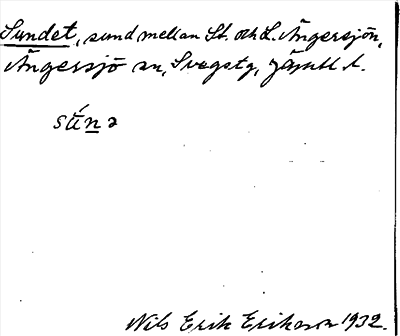 Sundet, sund mellan St. och L. Ängersjön,
Ängersjö sn, Svegstg, Jämtl. l.
sŭ́nə
Nils Erik Erikson 1932.